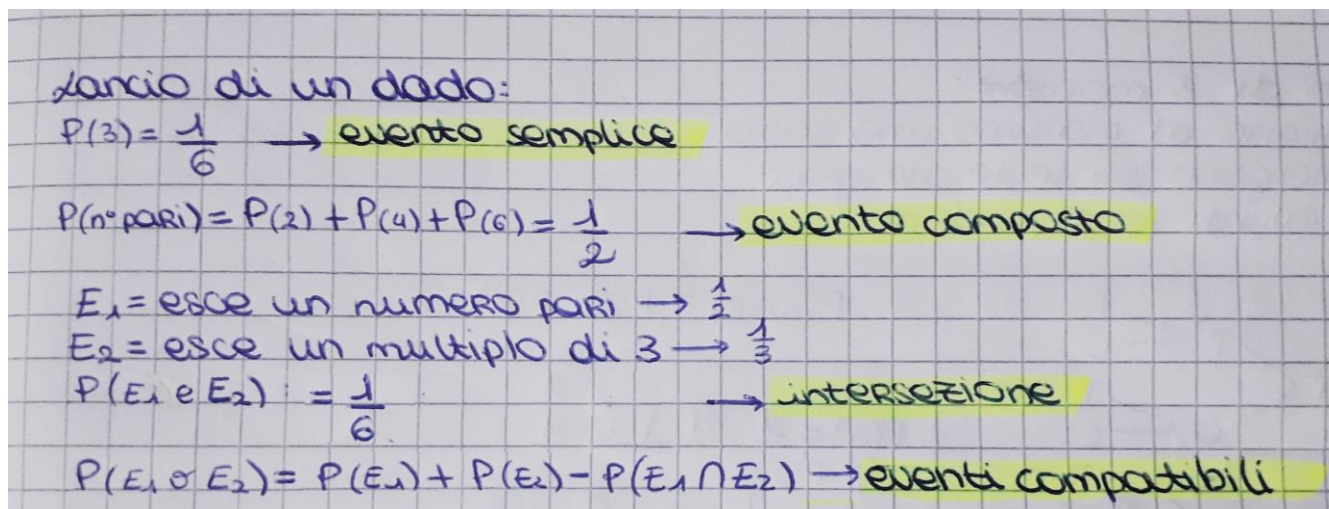 Lancio di un dado:
P(3) = 1/6 → evento semplice
P(n° pari) = P(2) + P(4) + P(6) = 1/2 → evento composto
E₁ = esce un numero pari → 1/2
E₂ = esce un multiplo di 3 → 1/3
P(E₁ e E₂) = 1/6 → intersezione
P(E₁ o E₂) = P(E₁) + P(E₂) - P(E₁ ∩ E₂) → eventi compatibili